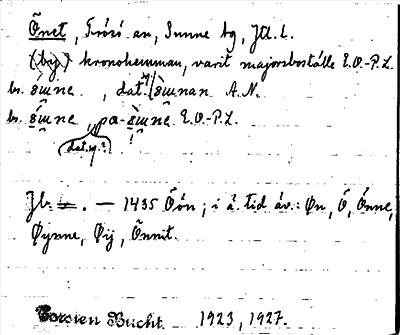 Önet, Frösö sn, Sunne tg, Jtl. l.
(by) kronohemman, varit majorsboställe E.O.-P.L.
bs. , dat. A.N.
bs. , på- E.O.-P.L.
dat. sg.?
Jb. = . — 1435 Öön; i ä. tid äv.: Øn, Ö, Önne,
Øynne, Øij, Önnit.
Torsten Bucht 1923, 1927.